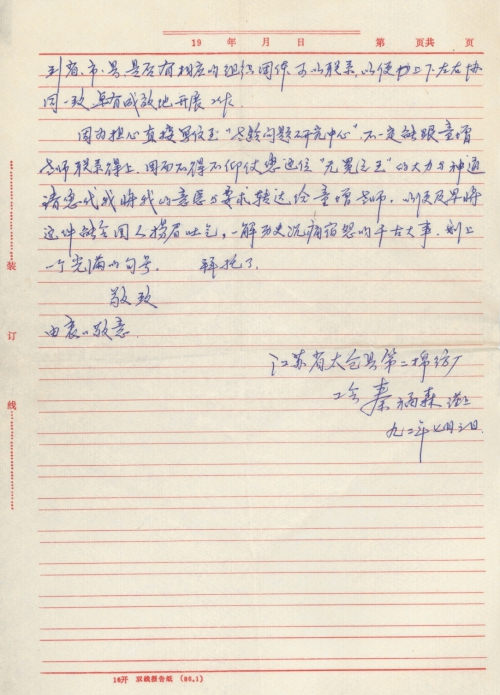 19 年 月 日 第 页共 页
到省、市、县是否有相应的组织团体可以联系，以便扩上下左右协
同一致卓有成效地开展工作。
因为担心直接写信至“老龄问题研究中心”不一定能跟童增
老师联系得上，因而不得不仰仗您这位“无冕之王”的大力与神通
请您代我将我的意愿与要求转达给童增老师。以便及早将
这件能令国人扬眉吐气，一解历史沉疴宿怨的千古大事，划上
一个完满的句号。 拜托了。
敬致
由衷的敬意
江苏省太仓县第二棉纺厂
工会 秦炳森
九二年七月三日
装
订
线
16开 双线报告纸 (86.1)